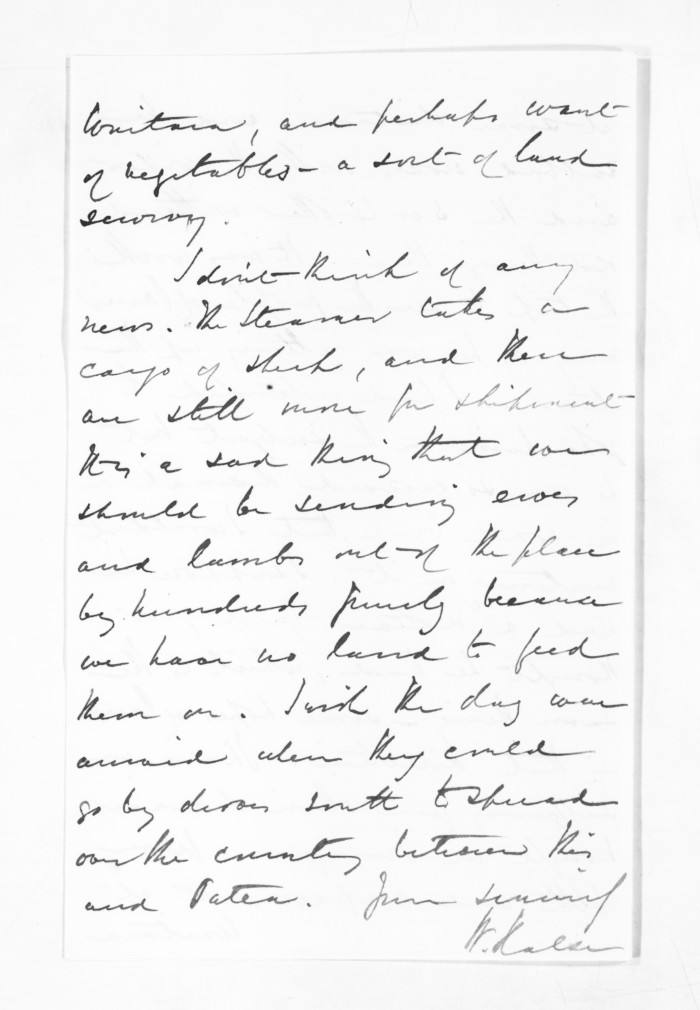 Waitara, and perhaps want
of vegetables - a sort of land
scurvy.
I don't think of any
news. The Steamer takes a
cargo of sheep, and there
are still more for shipment
It is a sad thing that we
should be sending ewes
and lambs out of the place
by hundreds purely because
we have no land to feed
them on. I wish the day was
arrived when they could
go by droves south to spread
over the country between this
and Patea. Yours sincerely
W. Halse